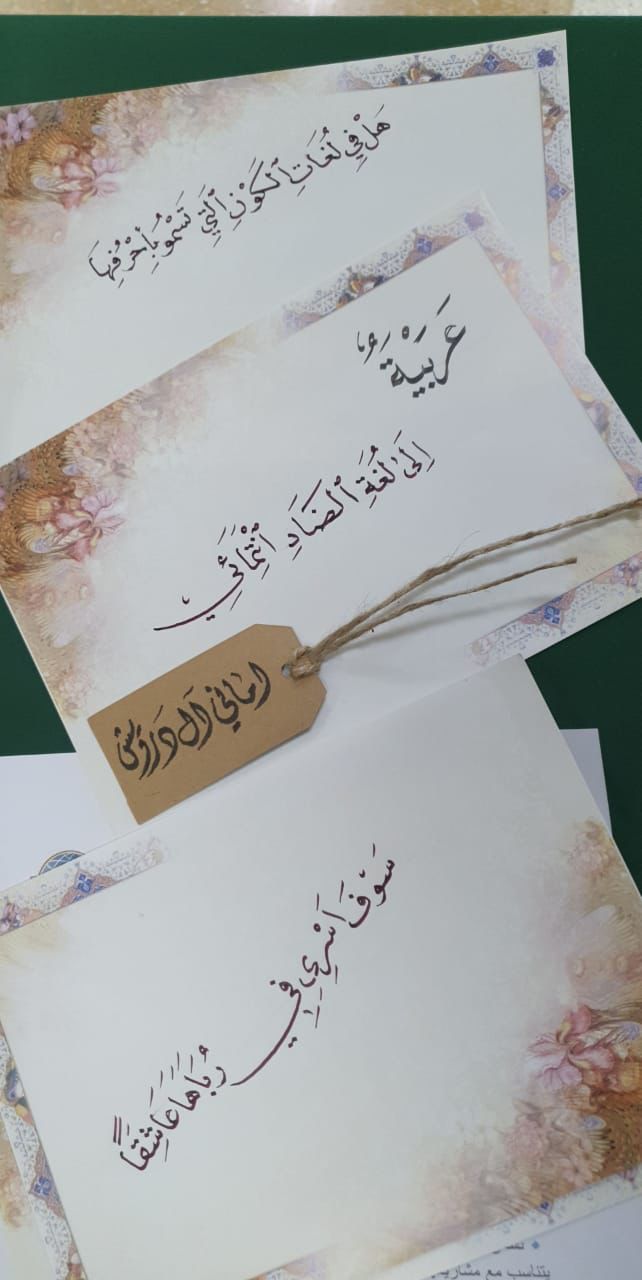 هَلْ فِي لُغَاتِ ٱلْكَوْنِ ٱلَّتِي تَسْمُو بِأَحْرُفِهَا
عَرَبِيْةٌ
إِلَى لُغَةِ ٱلضَادِ ٱنْتِمَائِي
اماني آل درويش
سَوْفَ اَسْرِي فِي
رُبَاهَا عَاشِقًا
يتناسب مع